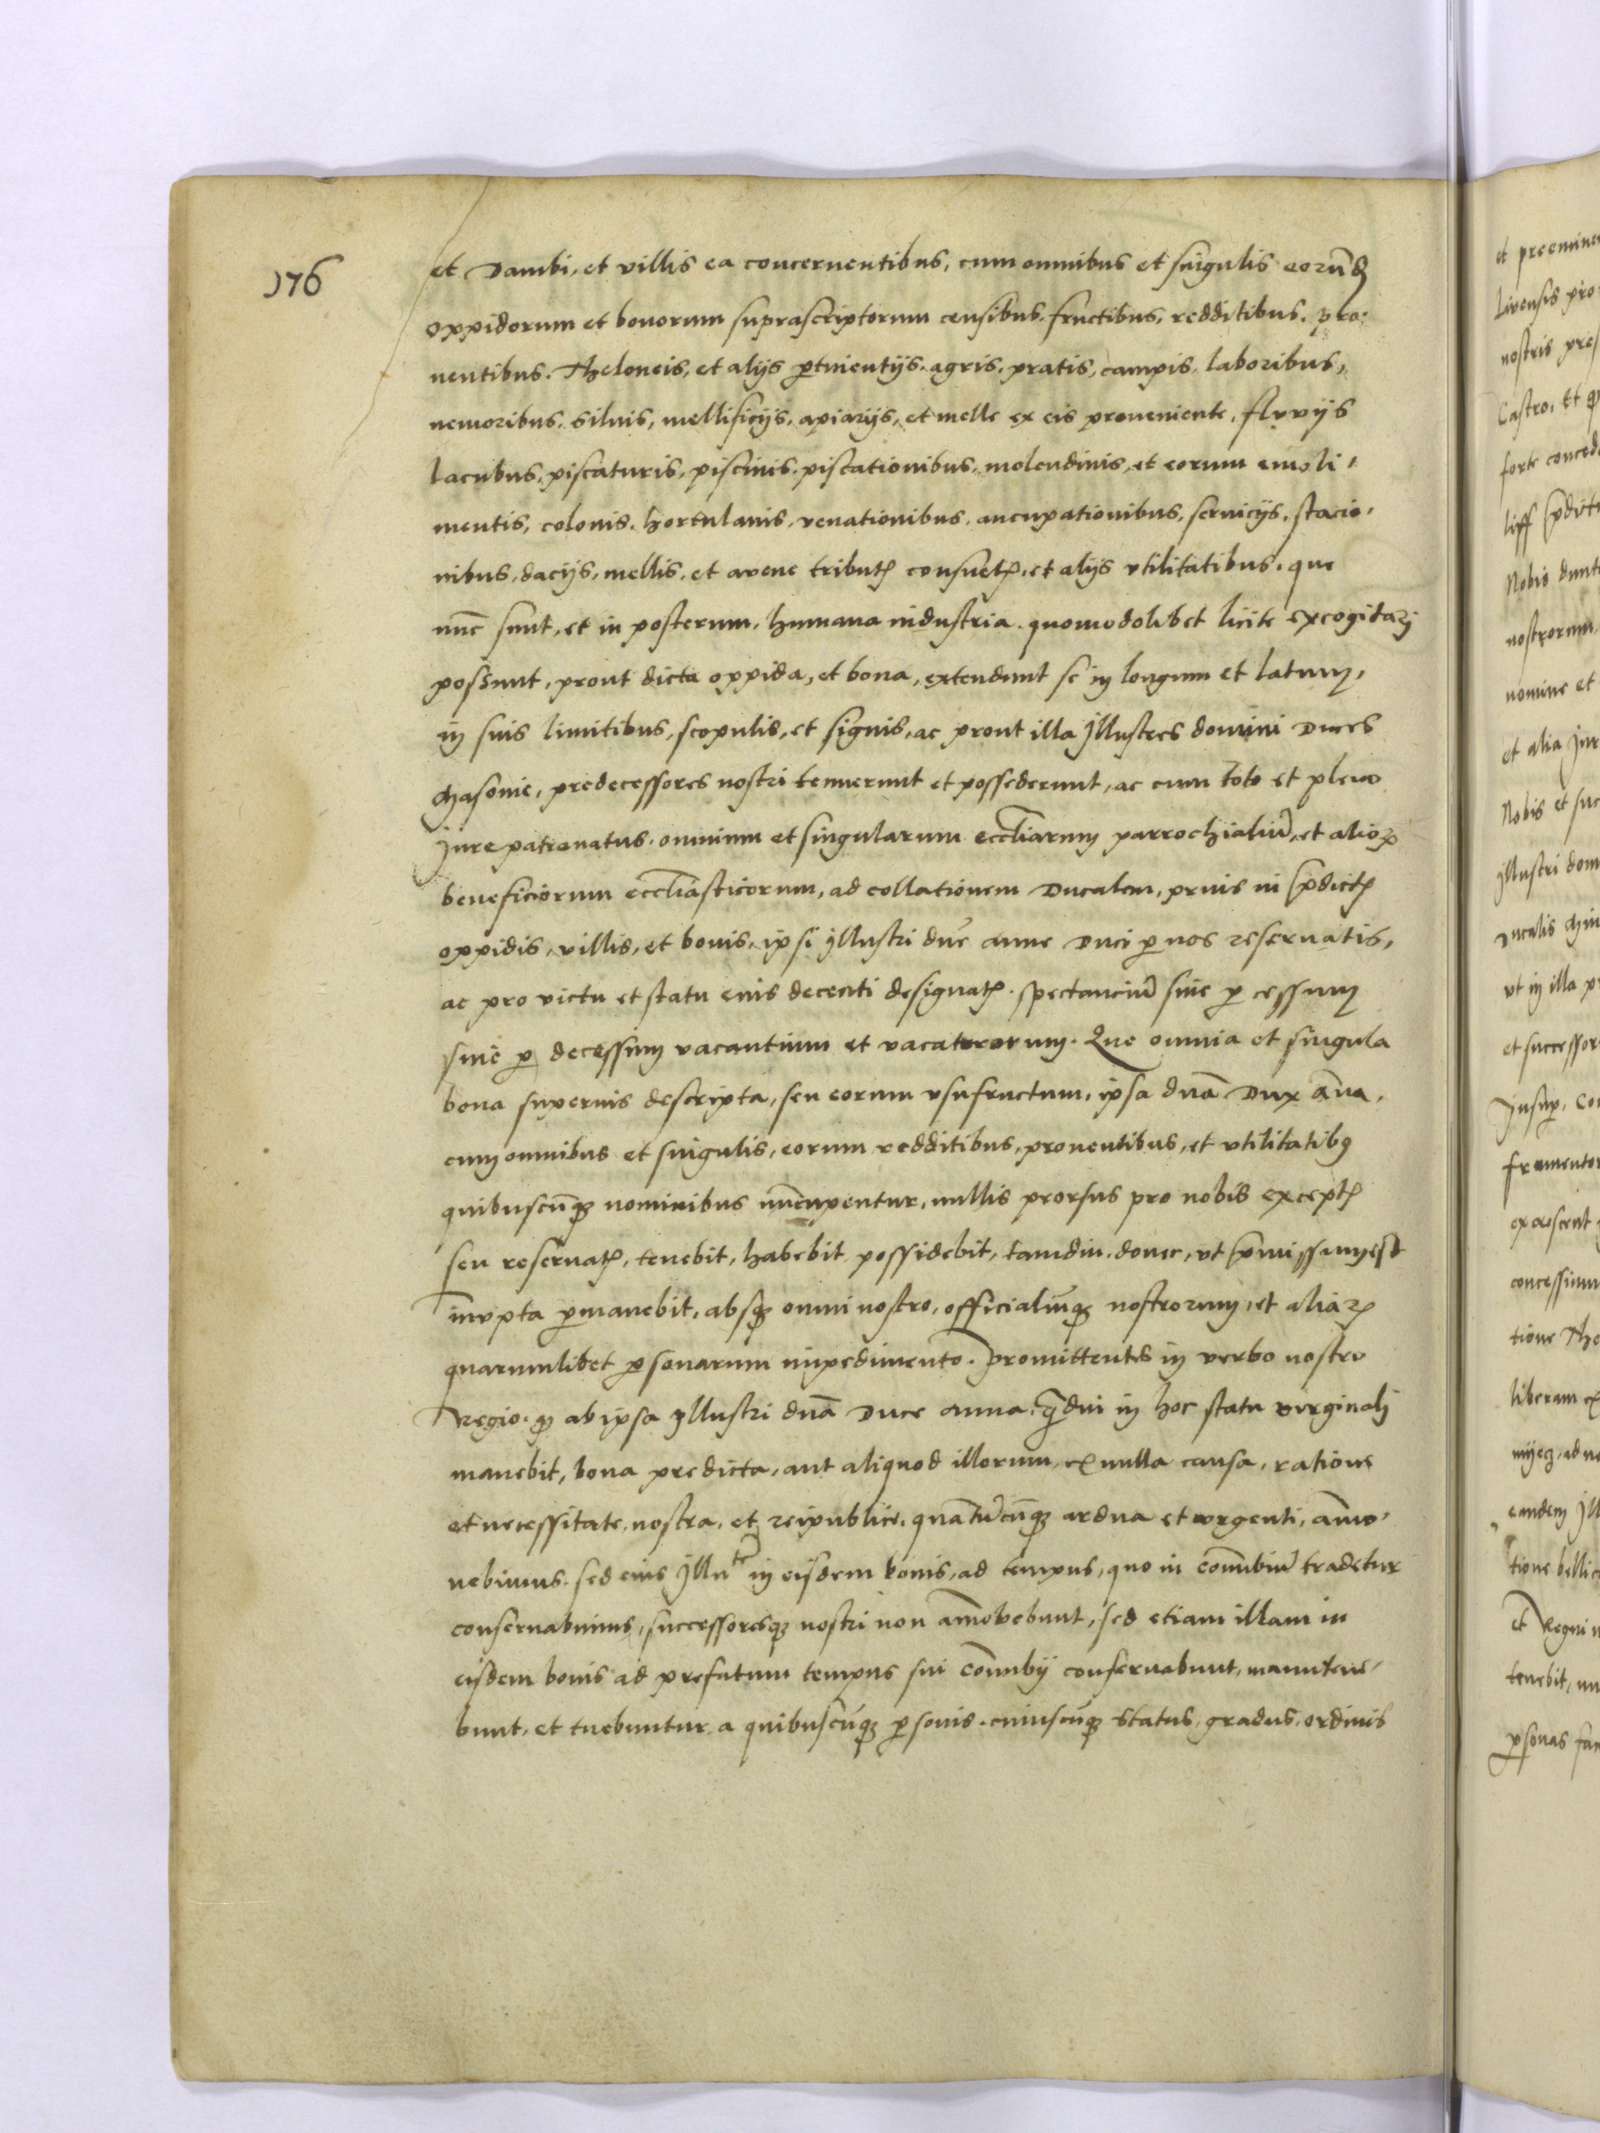 176
et Dambi, et villis ea concernentibus, cum omnibus et singulis eorūd
oppidorum et bonorum suprascriptorum censibus, fructibus, redditibus, pro⸗
uentibus. Theloneis, et alijs ꝑtinentijs, agris, pratis, campis, laboribus,
nemoribus, siluis, mellificijs, apiarijs, et melle ex eis proueniente, fluvijs
lacubus, piscaturis, piscinis, piscationibus, molendinis, et eorum emoli⸗
mentis, colonis, hortulanis, venationibus, aucupationibus, seruicijs, stacio⸗
nibus, dacijs, mellis, et avene tributꝭ consuetꝭ, et alijs vtilitatibus, que
nūc sunt, et in posterum, humana industria, quomodolibet licite excogitarj
possunt, prout dicta oppida, et bona, extendunt se in longum et latum,
in suis limitibus, scopulis, et signis, ac prout illa Jllustres domini Duces
Masouie, predecessores nostri tenuerunt et possederunt, ac cum toto et pleno
Jure patronatus, omnium et singularum eccliarum parrochialiū, et alioꝝ
beneficiorum eccliasticorum, ad collationem Ducalem, prius in p̄dictꝭ
oppidis, villis, et bonis, ipsi Jllustri dn̄e Anne Duci ꝑ nos reseruatis,
ac pro victu et statu eius decenti designatꝭ, spectanciū siue ꝑ cessum
siue ꝑ decessum vacantium et vacaturorum. Que omnia et singula
bona supernis descripta, seu eorum vsufructum, ipsa dn̄a Dux An̄a,
cum omnibus et singulis, eorum redditibus, prouentibus, et vtilitatibꝰ
quibuscūqꝫ nominibus nūcupentur, nullis prorsus pro nobis exceptꝭ
seu reseruatꝭ, tenebit, habebit possidebit, tamdiu, donec, vt p̄missum est
innupta ꝑmanebit, absqꝫ omni nostro, officialiūqꝫ nostrorum, et aliaꝝ
quarumlibet ꝑsonarum impedimento. Promittentes in verbo nostro
Regio, qꝫ ab ipsa Jllustri dn̄a Duce Anna, qd̄iu in hoc statu virginalj
manebit, bona predicta, aut aliquod illorum, ex nulla causa, ratione
et necessitate, nostra, et reipublice, quātūcūqꝫ ardua et vrgenti, am̄o⸗
uebimus, sed eius Jlluᵗᵉ̄ in eisdem bonis, ad tempus, quo in con̄ubiū tradetur
conseruabimus, successoresqꝫ nostri non am̄ovebunt, sed etiam illam in
eisdem bonis ad prefatum tempus sui con̄ubij conseruabunt, manutene⸗
bunt, et tuebuntur a quibuscūqꝫ ꝑsonis, cuiuscūqꝫ status, gradus, ordinis
et preemine
nostris pres
Castro, Et
forte conced
Nobis dunt
nostrorum,
nomine et
et alia Jur
Nobis et suc
Jllustri dom
Ducalis
vt in illa
et successor
Jnsuꝑ, co
frumentor
concessimu
tione The
liberam
eandem Jll
tione bellic
et Regni
tenebit,
ꝑsonas